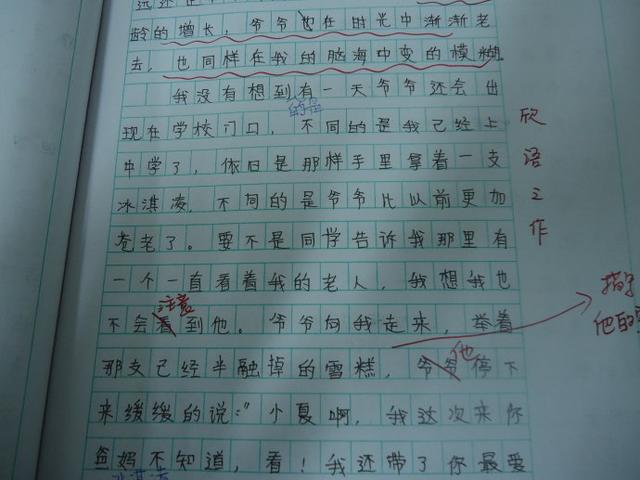 龄的增长，爷爷也在时光中渐渐老
去，也同样在我的脑海中变的模糊。
我没有想到有一天爷爷还会出
的是
现在学校门口，不同的是我已经上
中学了，依旧是那样手里拿着一支
冰淇凌，不同的是爷爷比以前更加
苍老了。要不是同学告诉我那里有
一个一直看着我的老人，我想我也
注意
不会看到他。爷爷向我走来，举着
那支已经半融掉的雪糕，爷爷停下
他
来缓缓的说："小夏啊，我这次来你
爸妈不知道，看！我还带了你最爱
欣
语
之
作